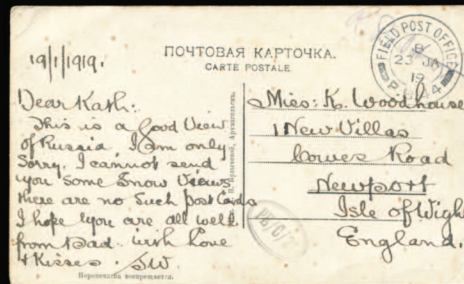 19/1/1919.
ПОЧТОВАЯ КАРТОЧКА.
CARTE POSTALE
FIELD POST OFFICE
23 JA
19
P.B.4
Dear Kath:
This is a Good View
of Russia I am only
Sorry. I cannot send
you Some Snow Views,
there are no Such Post Cards
I hope you are all well.
from Dad. with Love
& Kisses. SW
Miss: K. Woodhouse
1 New Villas
Cowes Road
Newport
Isle of Wigh
England.